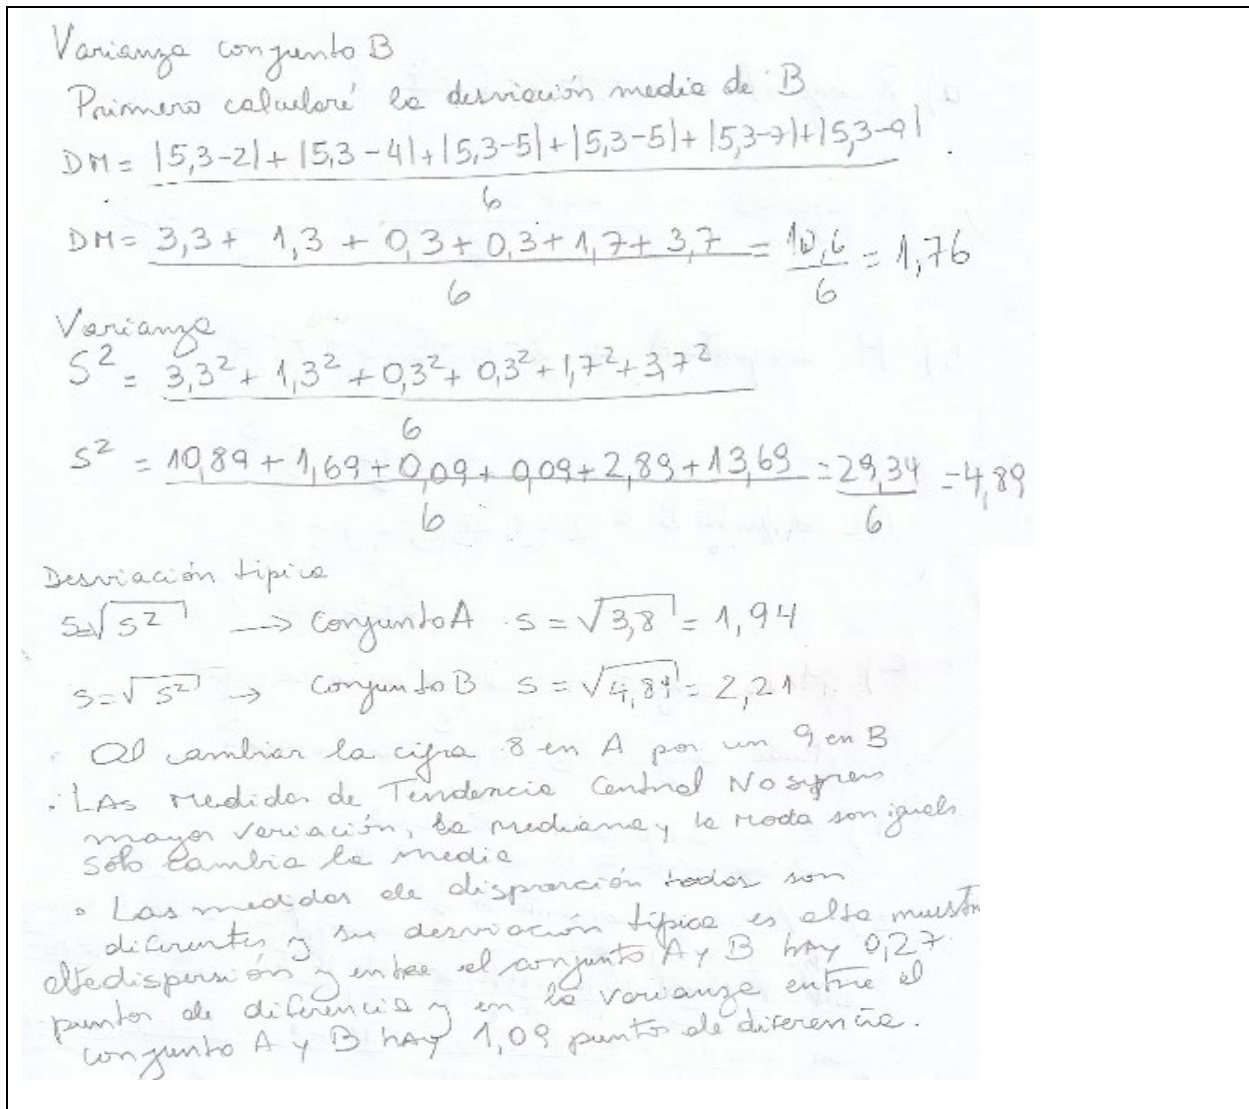 Varianza conjunto B
Primero calcularé la desviación media de B
DM = |5,3-2| + |5,3-4| + |5,3-5| + |5,3-5| + |5,3-7| + |5,3-9|
6
DM = 3,3 + 1,3 + 0,3 + 0,3 + 1,7 + 3,7 = 10,6 = 1,76
6 6
Varianza
S² = 3,3² + 1,3² + 0,3² + 0,3² + 1,7² + 3,7²
6
S² = 10,89 + 1,69 + 0,09 + 0,09 + 2,89 + 13,69 = 29,34 = 4,89
6 6
Desviación típica
S=√S² → Conjunto A S = √3,8 = 1,94
S=√S² → Conjunto B S = √4,89 = 2,21
· Al cambiar la cifra 8 en A por un 9 en B
· LAs Medidas de Tendencia Central No sufren
mayor variación, la mediana y la Moda son iguals
sólo cambia la media
· Las medidas de disperción todas son
diferentes y su desviación típica es alta muestra
alta dispersión y entre el conjunto A y B hAy 0,27
puntos de diferencia y en la varianza entre el
conjunto A y B hAy 1,09 puntos de diferencia.